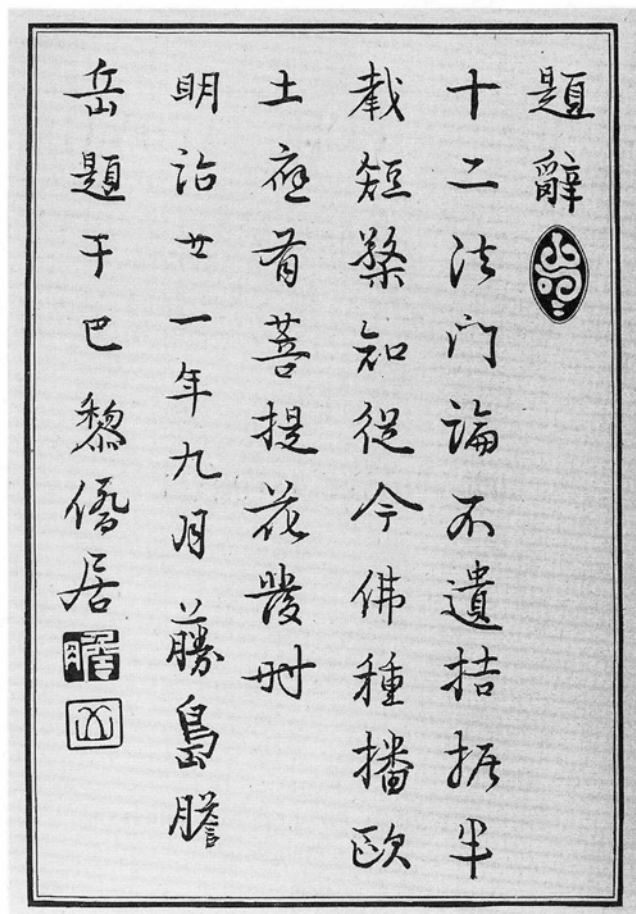 題辭
十二法門論不遺拮据半
載短檠知從今佛種播歐
土應有菩提花發時
明治廿一年九月藤島膽
岳題于巴黎僑居